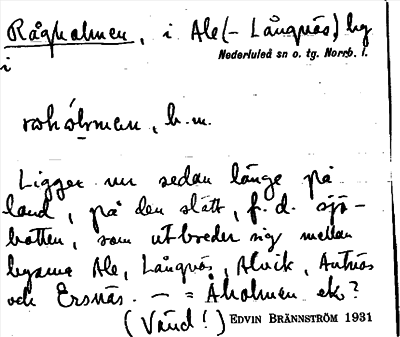 Rågholmen, i Ale (- Långnäs) by
Nederluleå sn o. tg. Norrb. l.
i
b. m.
Ligger nu sedan länge på
land, på den slätt, f. d. sjö-
botten, som utbreder sig mellan
byarna Ale, Långnäs, Alvik, Antnäs
och Ersnäs. — = Åholmen ek?
(Vänd!) EDVIN BRÄNNSTRÖM 1931